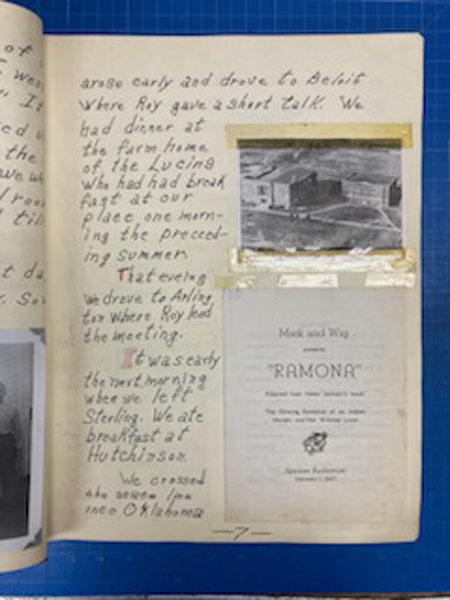 of
wer
It
ed u
the
we w
d roo
till
t da
So
arose early and drove to Beloit
where Roy gave a short talk. We
had dinner at
the farm home
of the Lucins
who had had break
fast at our
place one morn-
ing the preceed-
ing summer.
That eveing
we drove to Arling
ton where Roy lead
the meeting.
It was early
the next morning
when we left
Sterling. We ate
breakfast at
Hutchinson.
We crossed
the line
into Oklahoma
Mask and Wig
presents
"RAMONA"
Adapted from Helen Jackson's novel
The Stirring Romance of an Indian
Maiden and Her Ill-fated Lover
Spencer Auditorium
1947
—7—